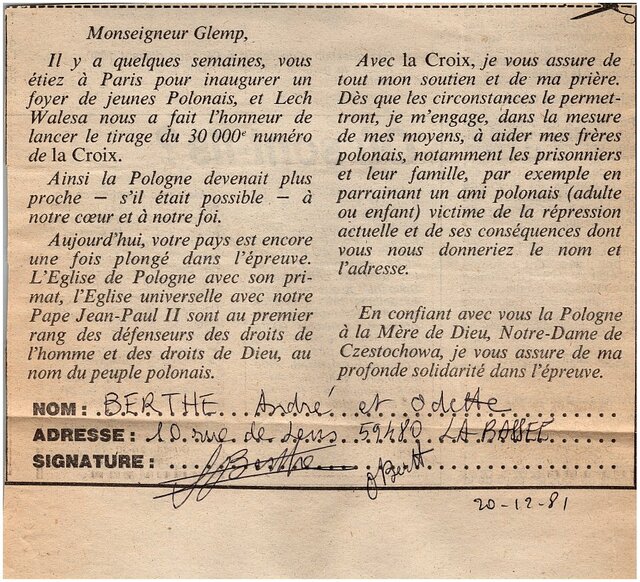 Monseigneur Glemp,
Il y a quelques semaines, vous
étiez à Paris pour inaugurer un
foyer de jeunes Polonais, et Lech
Walesa nous a fait l'honneur de
lancer le tirage du 30 000e numéro
de la Croix.
Ainsi la Pologne devenait plus
proche — s'il était possible — à
notre cœur et à notre foi.
Aujourd'hui, votre pays est encore
une fois plongé dans l'épreuve.
L'Eglise de Pologne avec son pri-
mat, l'Eglise universelle avec notre
Pape Jean-Paul II sont au premier
rang des défenseurs des droits de
l'homme et des droits de Dieu, au
nom du peuple polonais.
Avec la Croix, je vous assure de
tout mon soutien et de ma prière.
Dès que les circonstances le permet-
tront, je m'engage, dans la mesure
de mes moyens, à aider mes frères
polonais, notamment les prisonniers
et leur famille, par exemple en
parrainant un ami polonais (adulte
ou enfant) victime de la répression
actuelle et de ses conséquences dont
vous nous donneriez le nom et
l'adresse.
En confiant avec vous la Pologne
à la Mère de Dieu, Notre-Dame de
Czestochowa, je vous assure de ma
profonde solidarité dans l'épreuve.
NOM : BERTHE André et Odette
ADRESSE : 10 rue de Lens 59480 LA BASSEE
SIGNATURE : Berthe OBerth
20-12-81